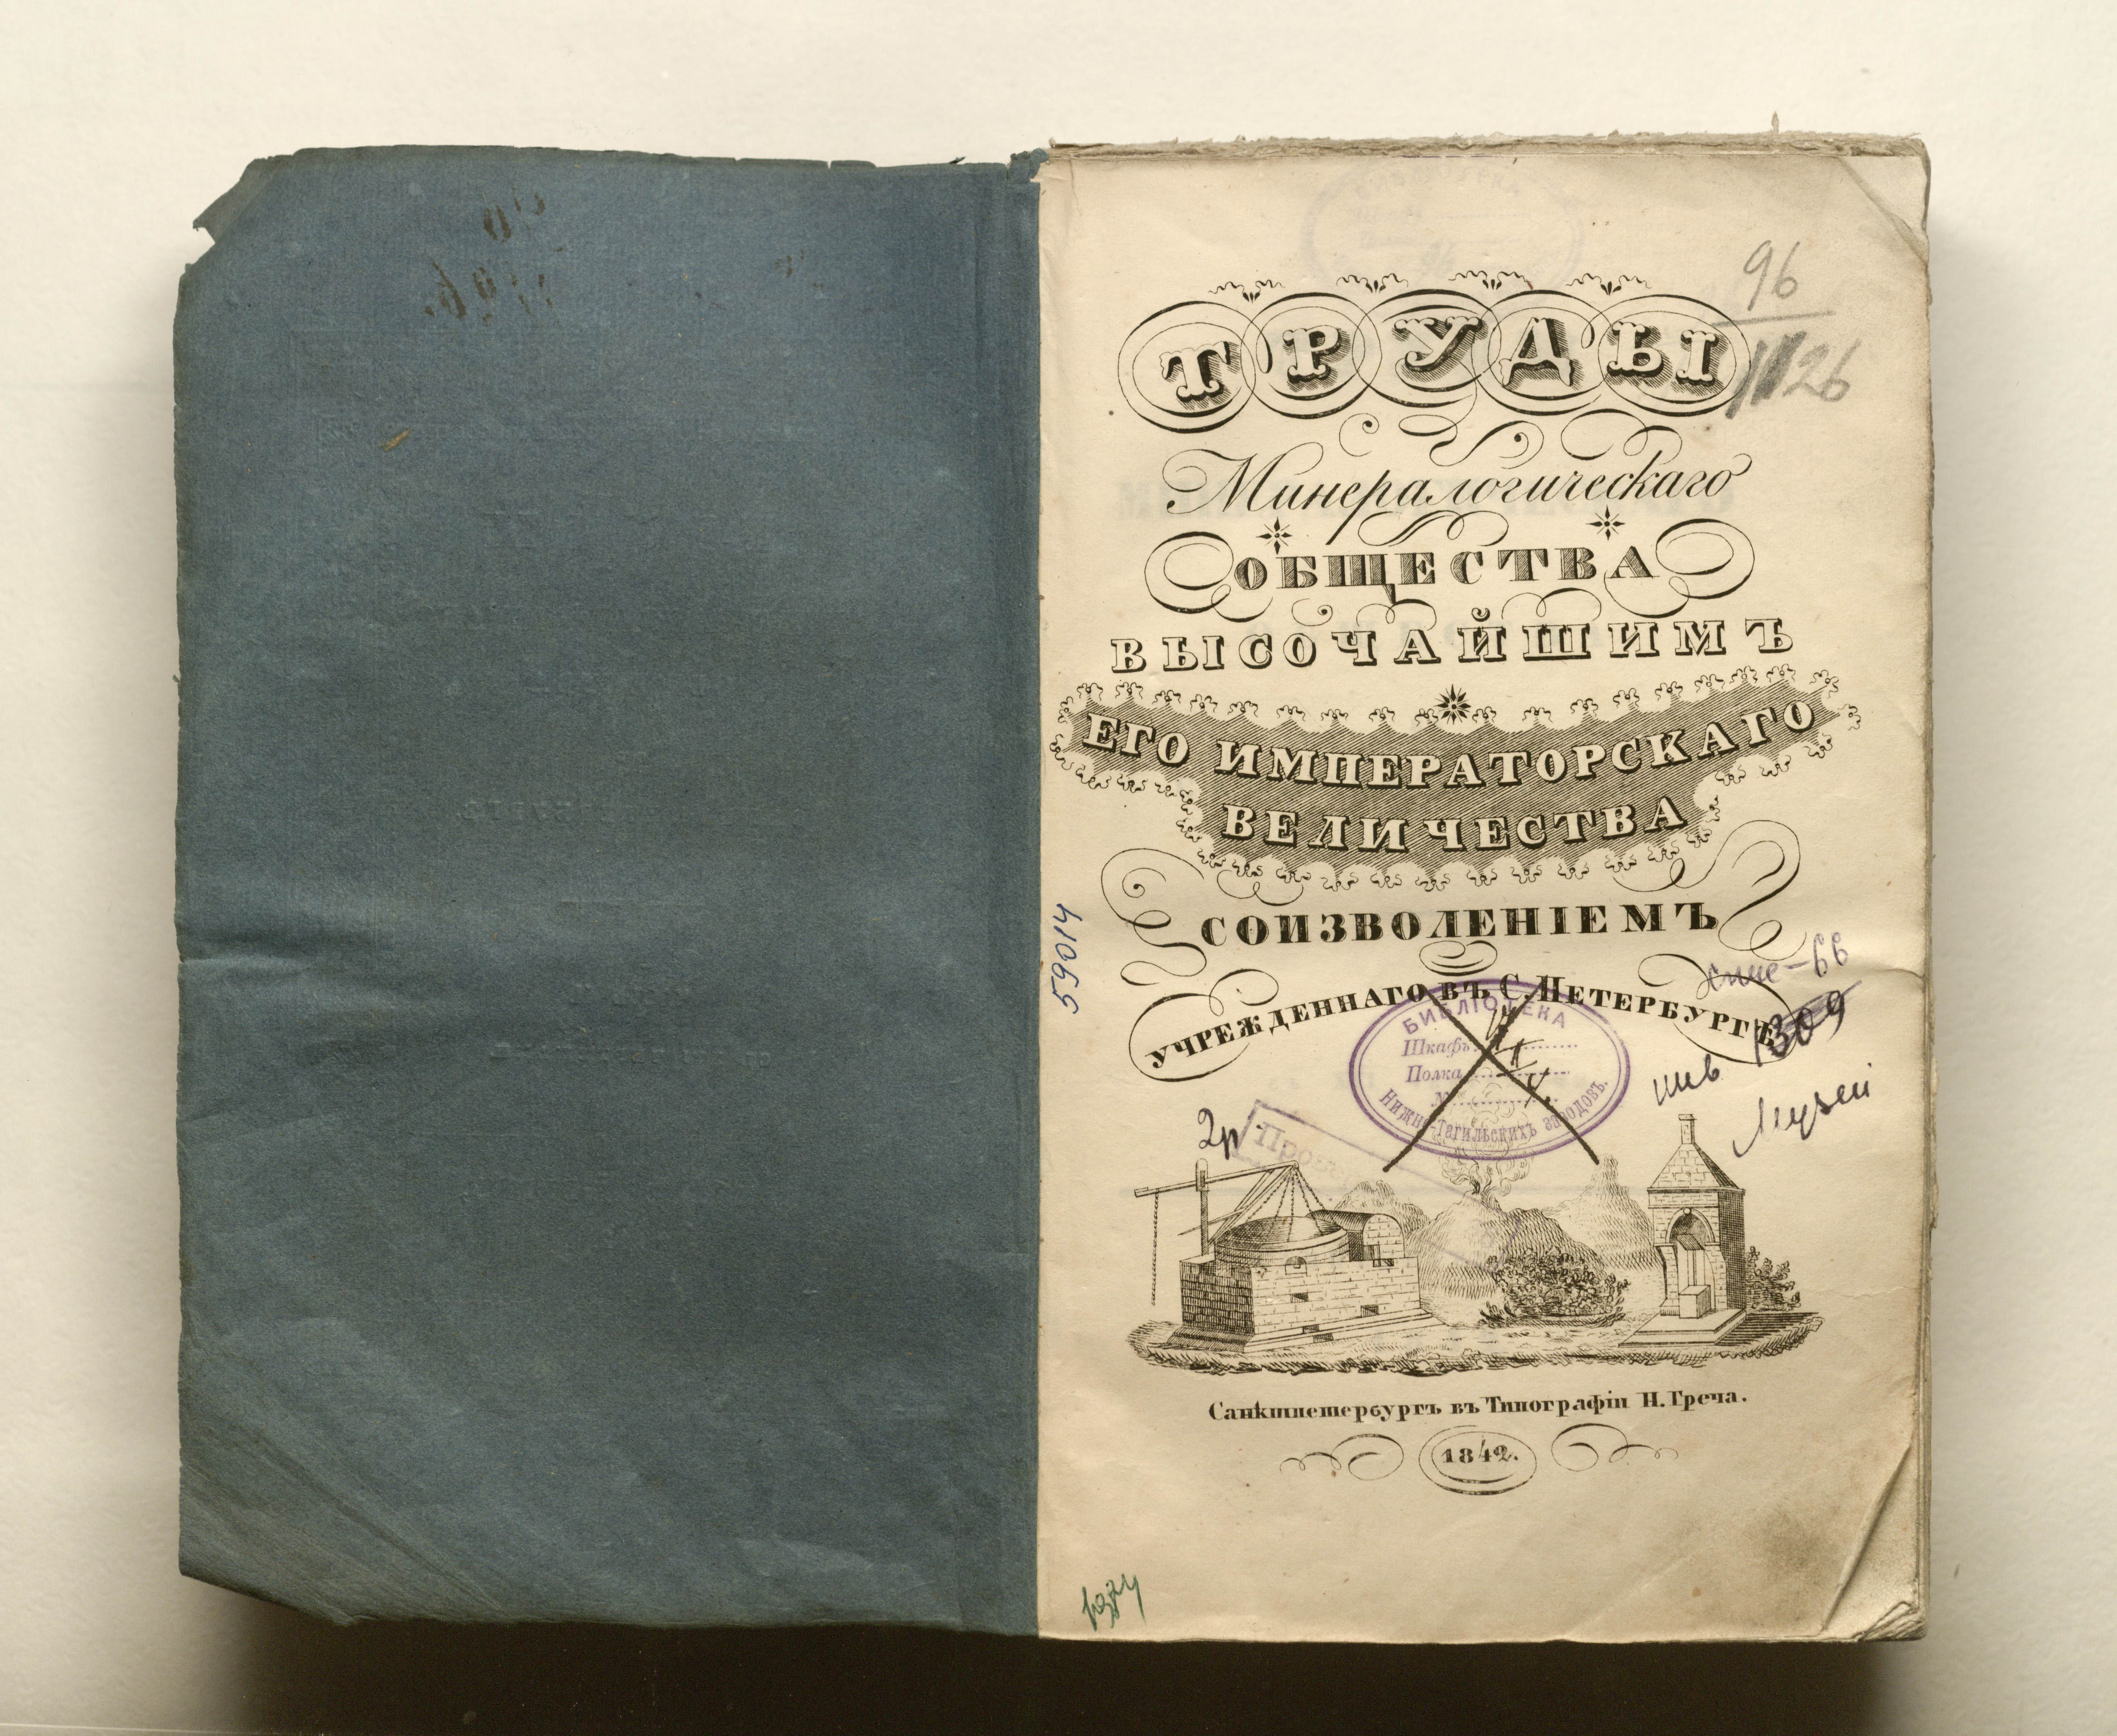 96
26
ТРУДЫ
Минералогическаго
ОБЩЕСТВА
ВЫСОЧАЙШИМЪ
ЕГО ИМПЕРАТОРСКАГО
ВЕЛИЧЕСТВА
СОИЗВОЛЕНІЕМЪ
УЧРЕЖДЕННАГО ВЪ С. ПЕТЕРБУРГѢ
59014
БИБЛІОТЕКА
Шкафъ
Полка
№
Нижне-Тагильскихъ заводовъ.
инв 1309
Музей
2р
Санктпетербургъ въ Типографіи Н. Греча.
1842.